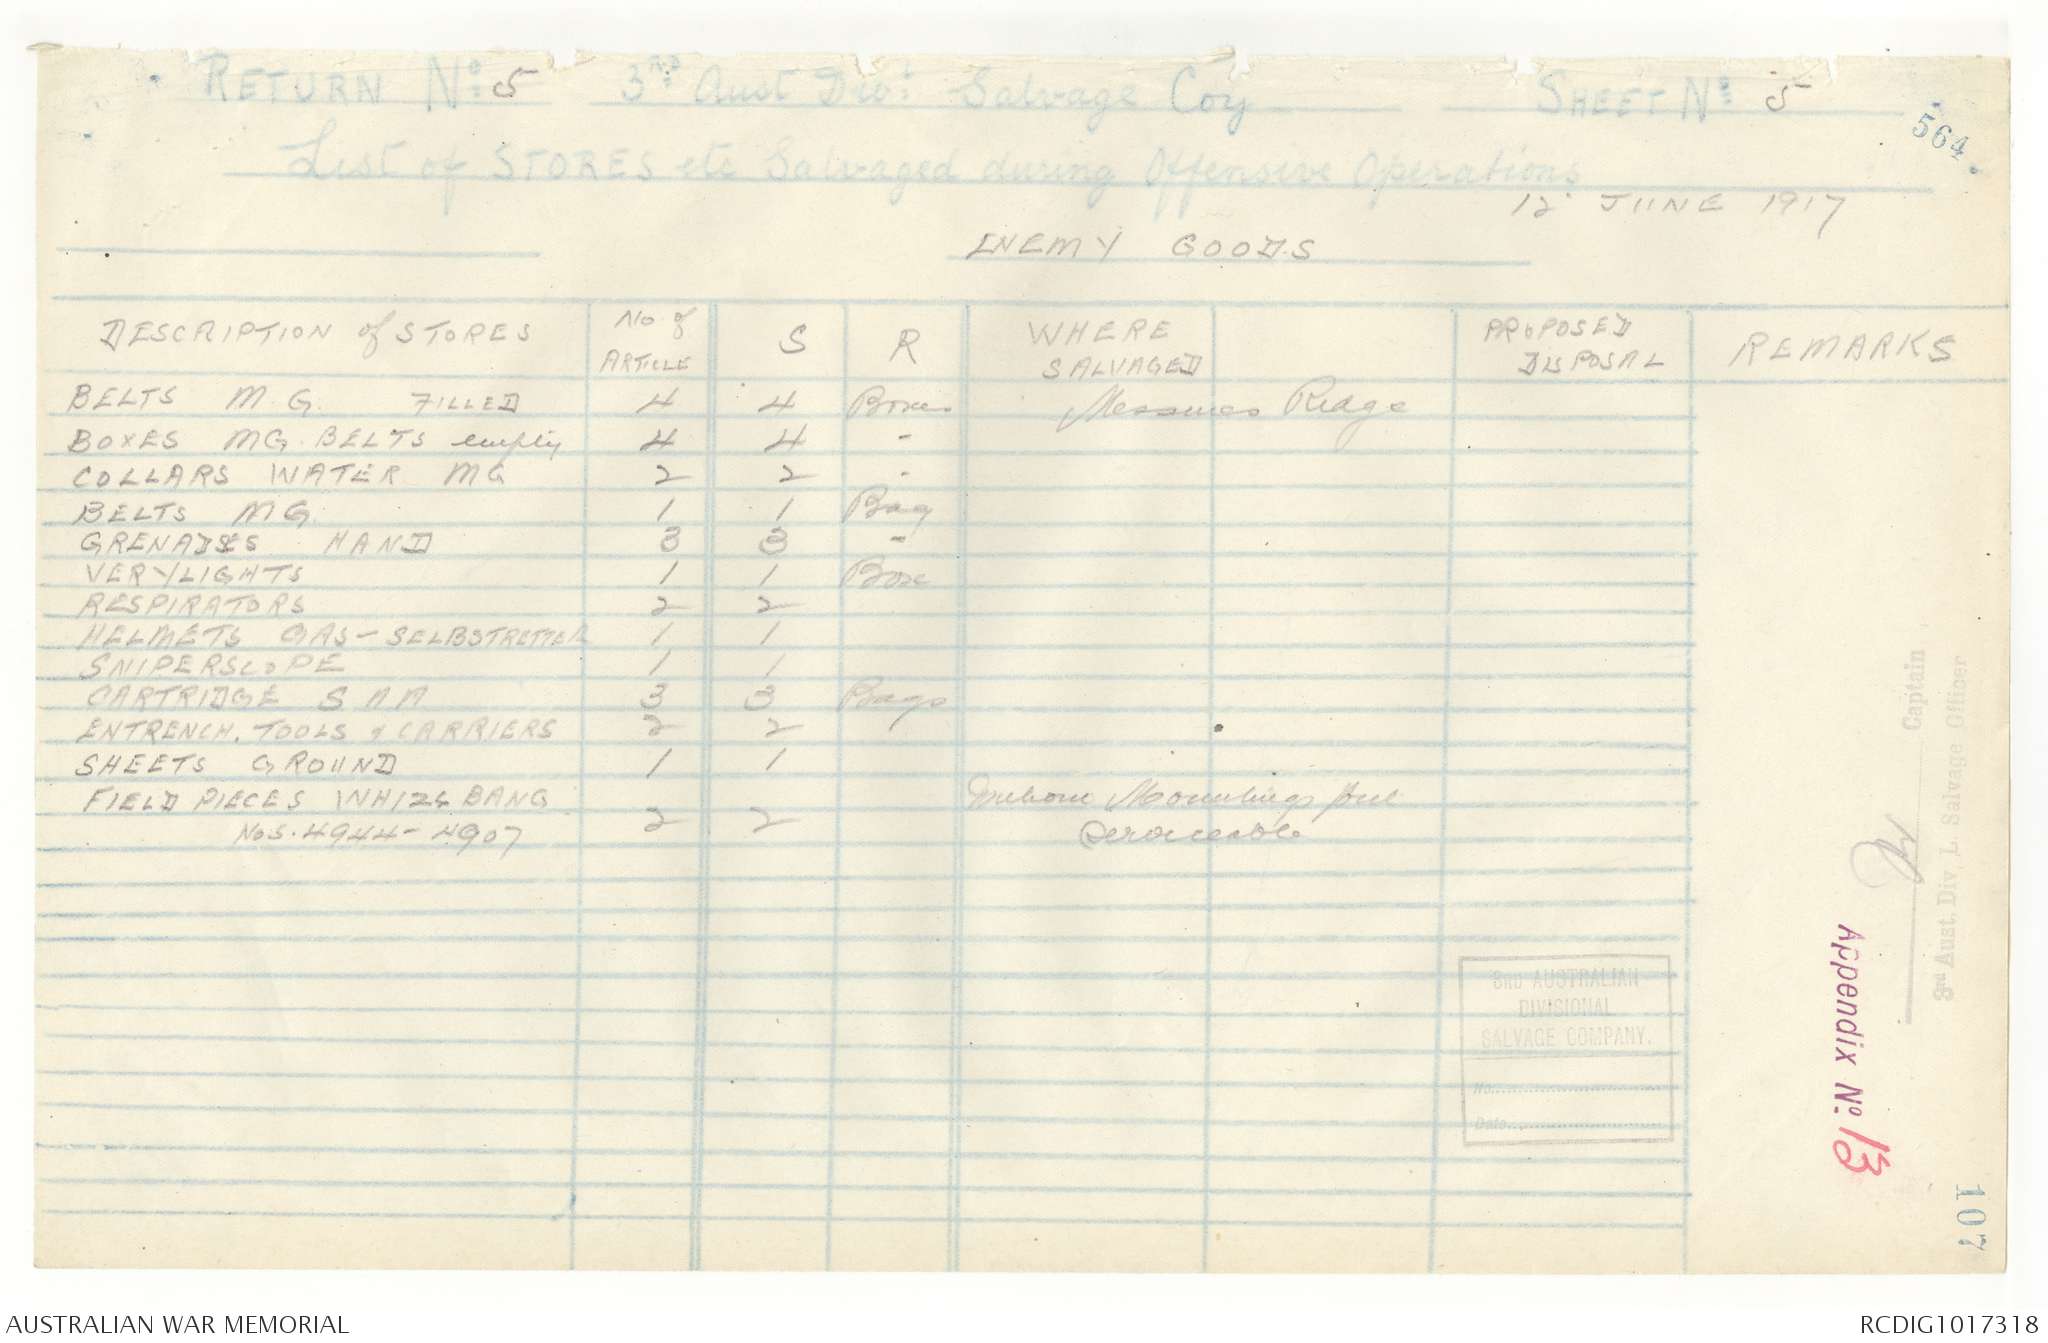 RETURN No: 5 3RD Aust Div: Salvage Coy SHEET No 5
564
List of STORES etc Salvaged during Offensive Operations
12 JUNE 1917
ENEMY GOODS
DESCRIPTION of STORES No of ARTICLE S R WHERE SALVAGED PROPOSED DISPOSAL REMARKS
BELTS M.G. FILLED 4 4 Boxes Messines Ridge
BOXES MG. BELTS empty 4 4 -
COLLARS WATER MG 2 2 -
BELTS MG. 1 1 Bag
GRENADES HAND 3 3 -
VERYLIGHTS 1 1 Box
RESPIRATORS 2 2
HELMETS GAS - SELBSTRETTER 1 1
SNIPERSCOPE 1 1
CARTRIDGE S A A 3 3 Bags
ENTRENCH. TOOLS & CARRIERS 2 2
SHEETS GROUND 1 1
FIELD PIECES WHIZ & BANG Mountings but
Nos. 4944 - 4907 2 2 Serviceable
Captain
3rd Aust. Div. L. Salvage Officer
3RD AUSTRALIAN
DIVISIONAL
SALVAGE COMPANY.
No.
Date
Appendix No. 13
107
AUSTRALIAN WAR MEMORIAL RCDIG1017318